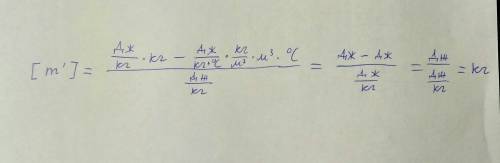 [m'] = (Дж/кг · кг − Дж/(кг·°С) · кг/м³ · м³ · °С) / (Дж/кг) = (Дж − Дж) / (Дж/кг) = Дж / (Дж/кг) = кг